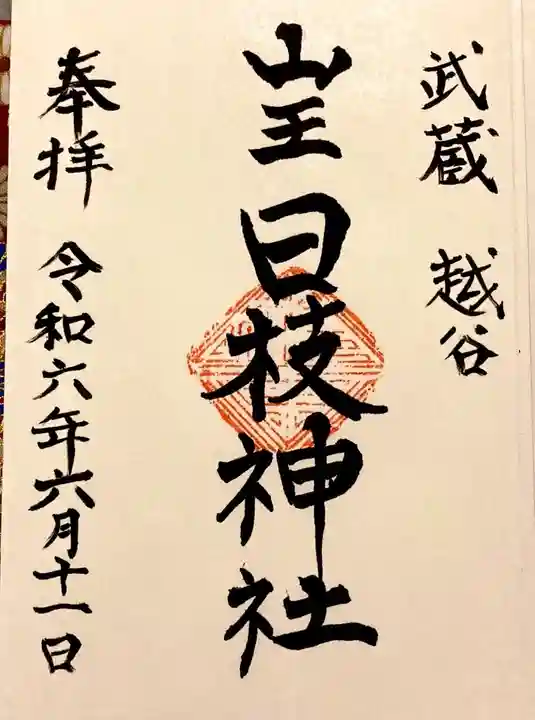 武蔵 越谷
山王日枝神社
奉拝 令和六年六月十一日